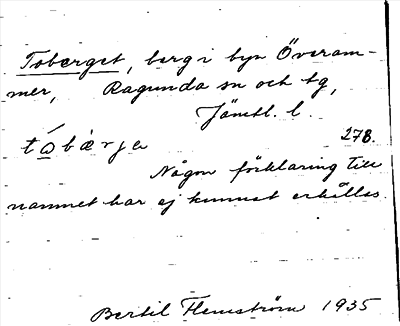 Toberget, berg i byn Överam-
mer, Ragunda sn och tg,
Jämtl. l.
tòbærja 278.
Någon förklaring till
namnet har ej kunnat erhållas.
Bertil Flemström 1935